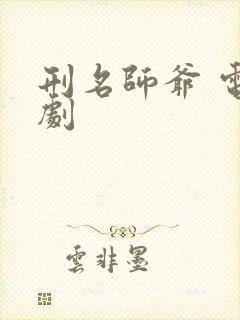 刑名師爺 電
劇
雲非墨